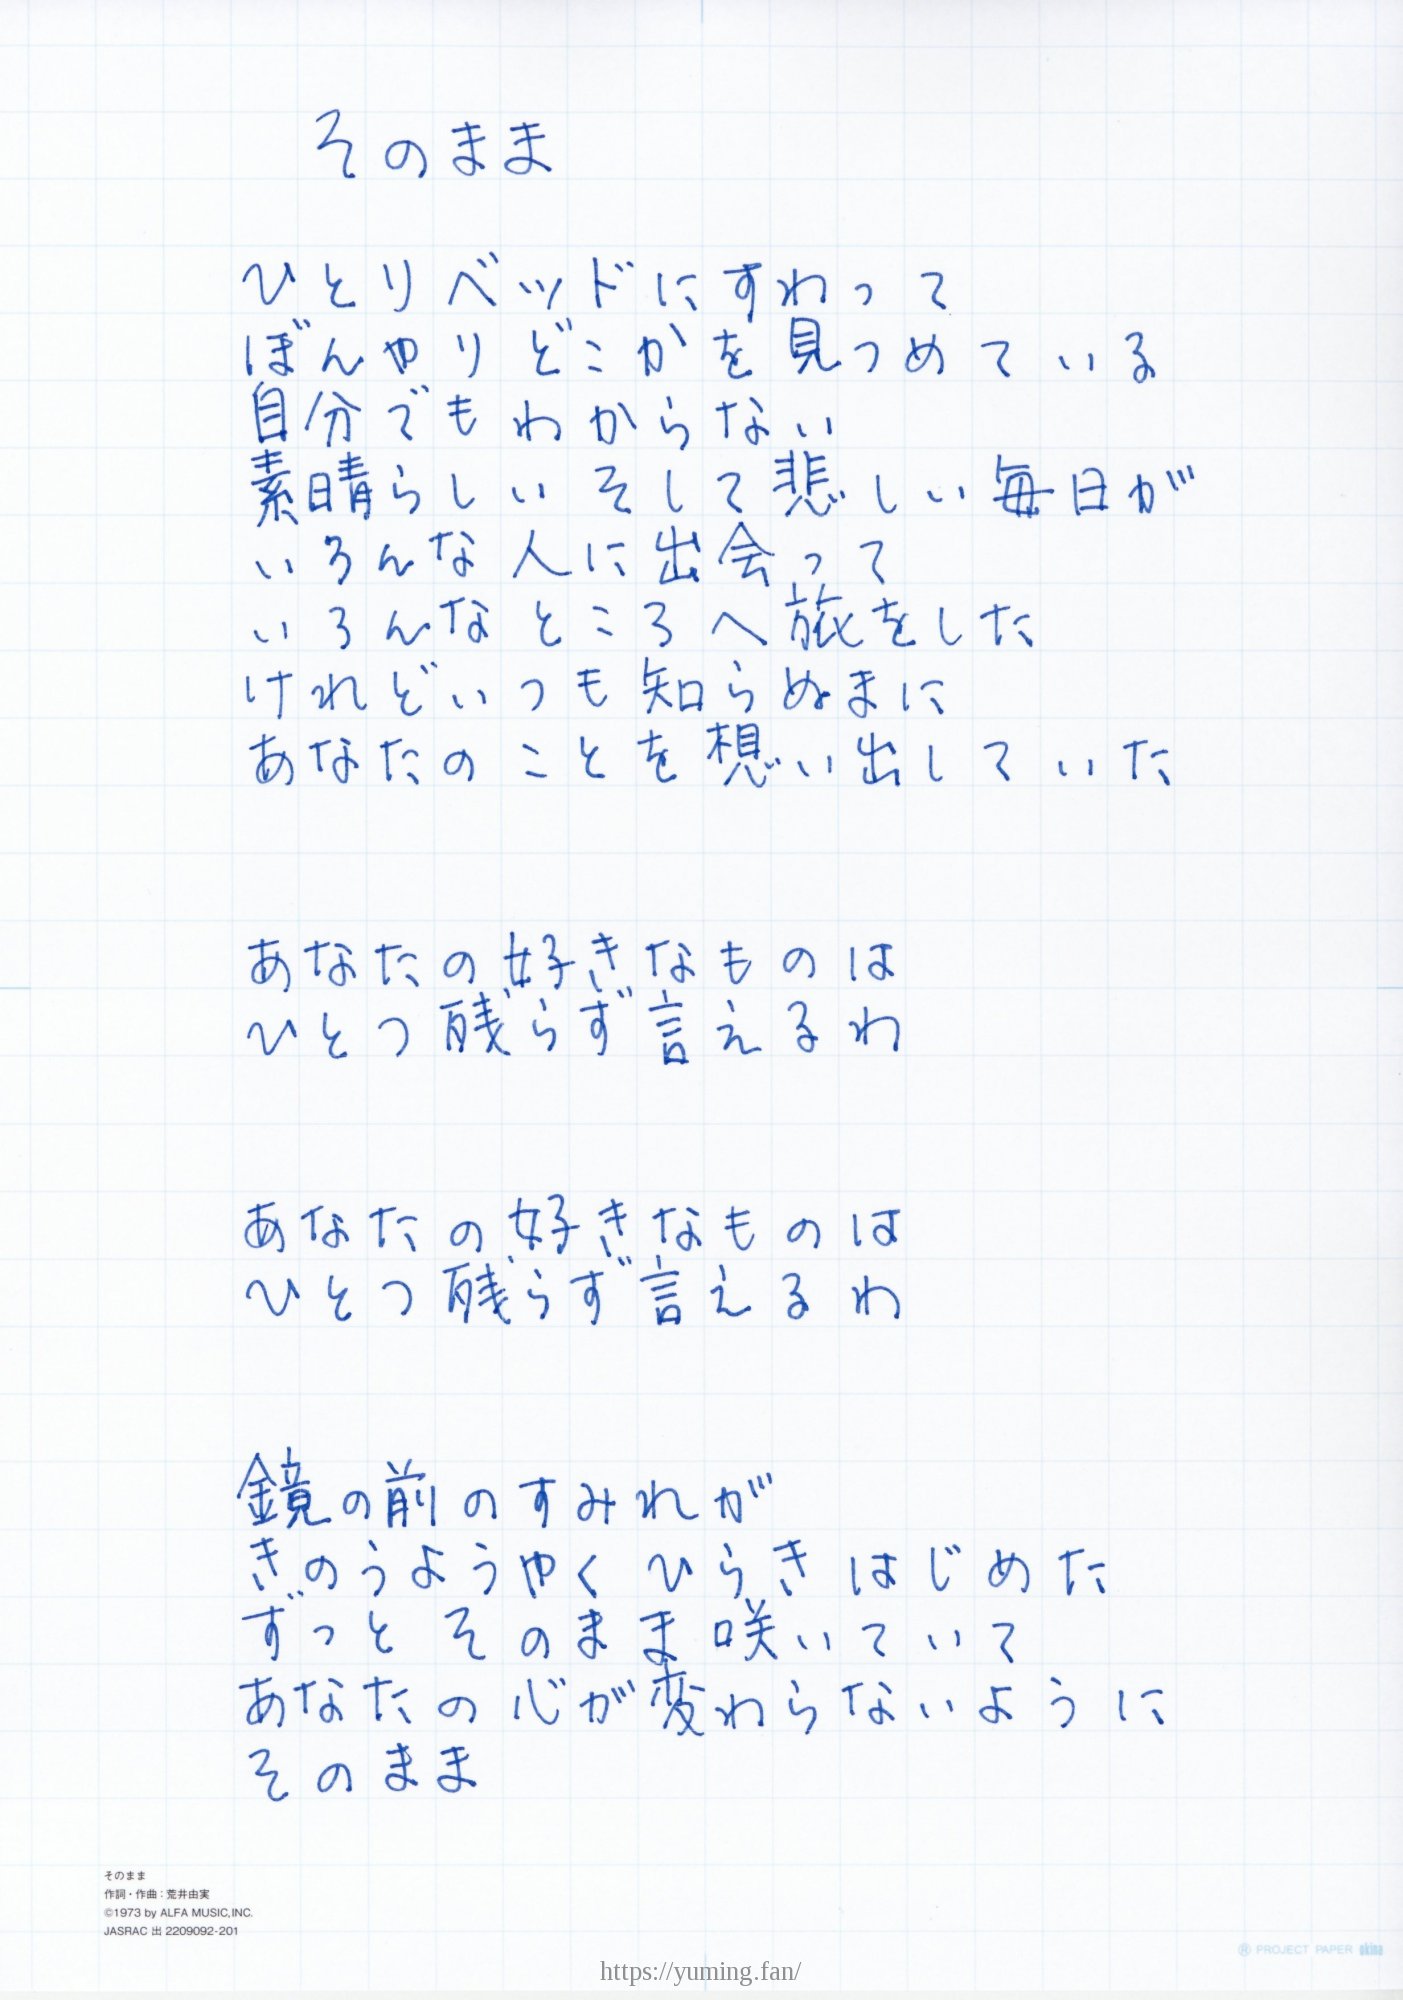 そのまま
ひとりベッドにすわって
ぼんやりどこかを見つめている
自分でもわからない
素晴らしいそして悲しい毎日が
いろんな人に出会って
いろんなところへ旅をした
けれどいつも知らぬまに
あなたのことを想い出していた
あなたの好きなものは
ひとつ残らず言えるわ
あなたの好きなものは
ひとつ残らず言えるわ
鏡の前のすみれが
きのうようやくひらきはじめた
ずっとそのまま咲いていて
あなたの心が変わらないように
そのまま
そのまま
作詞・作曲:荒井由実
©1973 by ALFA MUSIC,INC.
JASRAC 出 2209092-201
® PROJECT PAPER okina
https://yuming.fan/